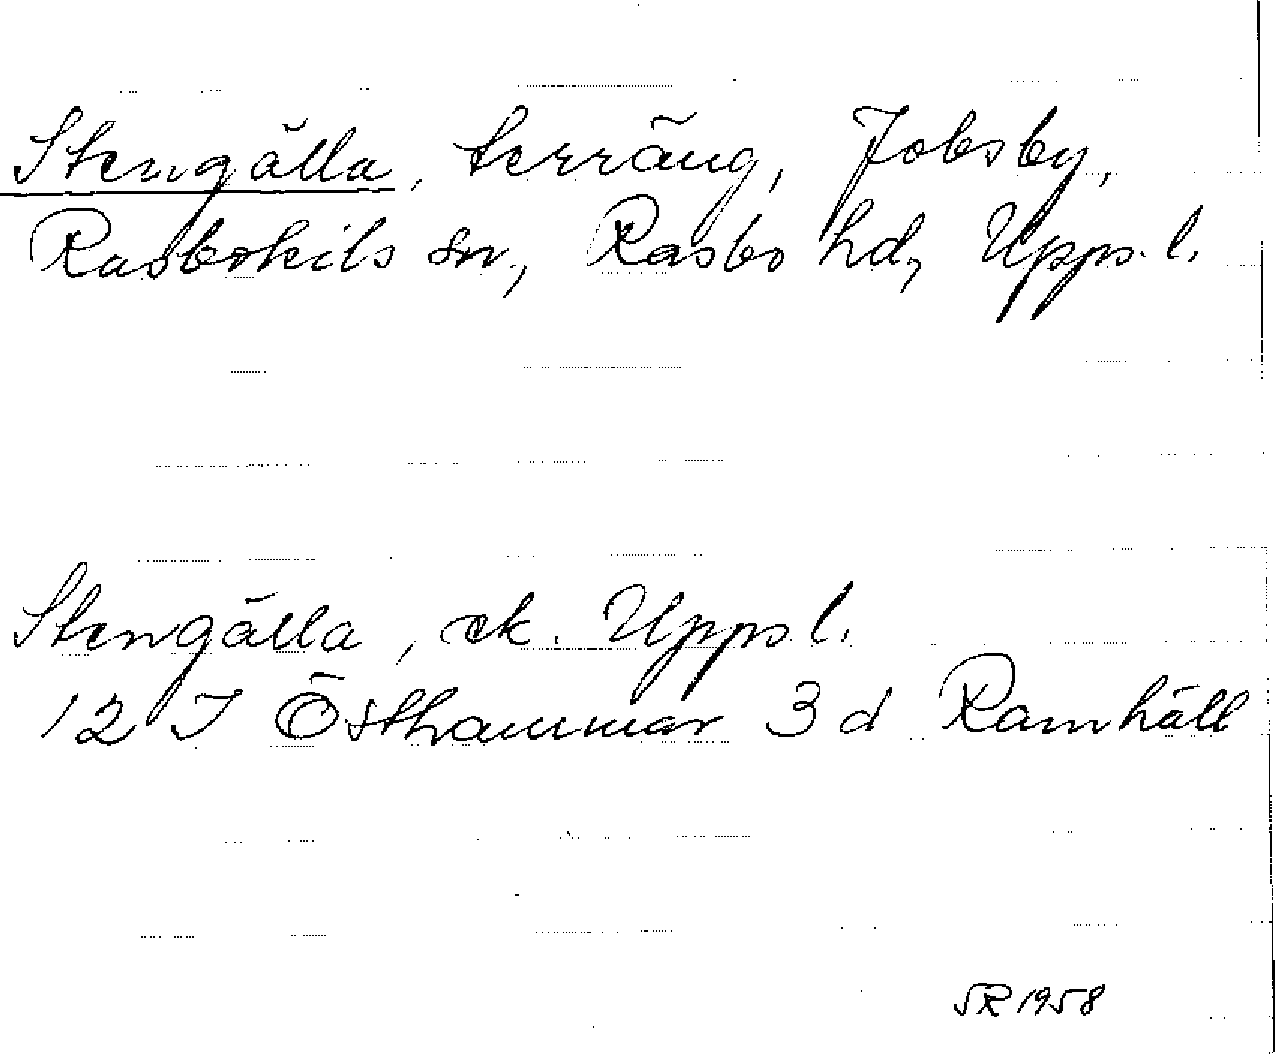 Stengälla, terräng, Jobsby,
Rasbokils sn, Rasbo hd, Uppl.
Stengälla, ek. Uppl.
12 I Östhammar 3 d Ramhäll
SR 1958